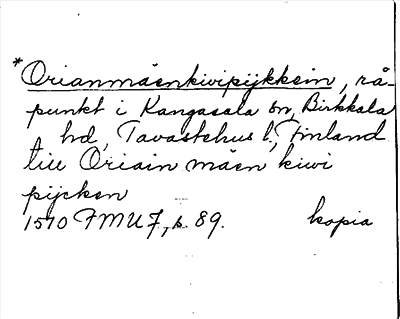 *Orianmäenkivipijkksin, rå-
punkt i Kangasala sn, Birkkala
hd, Tavastehus l., Finland
till Oriain mäen kiwi
pijcken
1570 FMU 7, s. 89. kopia